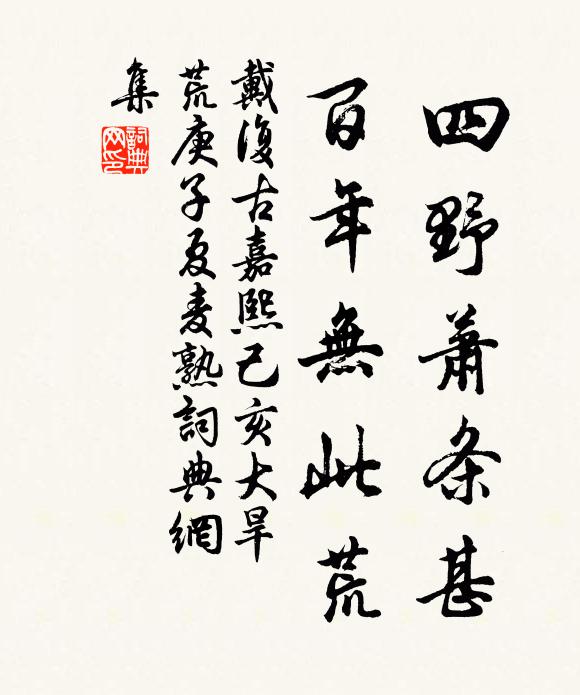 四野蕭条甚
百年無此荒
戴復古嘉熙己亥大旱
荒庚子夏麦熟詞典網
集
詞典
网印